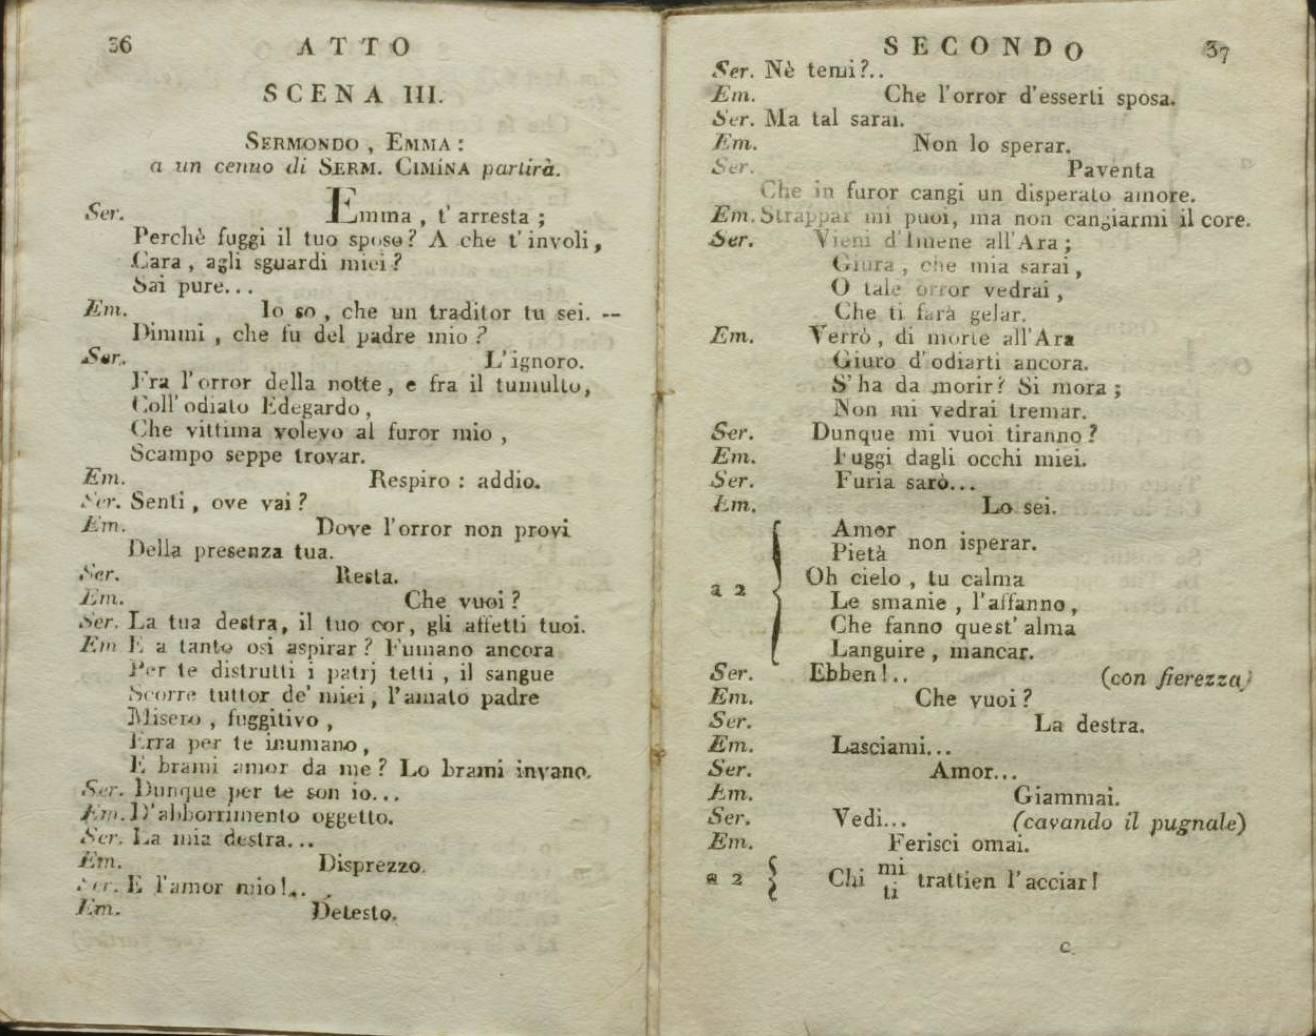 36
ATTO
SCENA III.
SERMONDO, EMMA:
a un cenno di SERM. CIMINA partirà.
Ser. Emma, t'arresta;
Perchè fuggi il tuo sposo? A che t'involi,
Cara, agli sguardi miei?
Sai pure...
Em. Io so, che un traditor tu sei. --
Dimmi, che fu del padre mio?
Ser. L'ignoro.
Fra l'orror della notte, e fra il tumulto,
Coll'odiato Edegardo,
Che vittima volevo al furor mio,
Scampo seppe trovar.
Em. Respiro: addio.
Ser. Senti, ove vai?
Em. Dove l'orror non provi
Della presenza tua.
Ser. Resta.
Em. Che vuoi?
Ser. La tua destra, il tuo cor, gli affetti tuoi.
Em E a tanto osi aspirar? Fumano ancora
Per te distrutti i patrj tetti, il sangue
Scorre tuttor de' miei, l'amato padre
Misero, fuggitivo,
Erra per te inumano,
E brami amor da me? Lo brami invano.
Ser. Dunque per te son io...
Em. D'abborrimento oggetto.
Ser. La mia destra...
Em. Disprezzo.
Ser. E l'amor mio!..
Em. Detesto.
SECONDO
37
Ser. Nè temi?..
Em. Che l'orror d'esserti sposa.
Ser. Ma tal sarai.
Em. Non lo sperar.
Ser. Paventa
Che in furor cangi un disperato amore.
Em. Strappar mi puoi, ma non cangiarmi il core.
Ser. Vieni d'Imene all'Ara;
Giura, che mia sarai,
O tale orror vedrai,
Che ti farà gelar.
Em. Verrò, di morte all'Ara
Giuro d'odiarti ancora.
S'ha da morir? Si mora;
Non mi vedrai tremar.
Ser. Dunque mi vuoi tiranno?
Em. Fuggi dagli occhi miei.
Ser. Furia sarò...
Em. Lo sei.
a 2
Amor
Pietà non isperar.
Oh cielo, tu calma
Le smanie, l'affanno,
Che fanno quest'alma
Languire, mancar.
Ser. Ebben!.. (con fierezza)
Em. Che vuoi?
Ser. La destra.
Em. Lasciami...
Ser. Amor...
Em. Giammai.
Ser. Vedi... (cavando il pugnale)
Em. Ferisci omai.
a 2 Chi mi
ti trattien l'acciar!
c